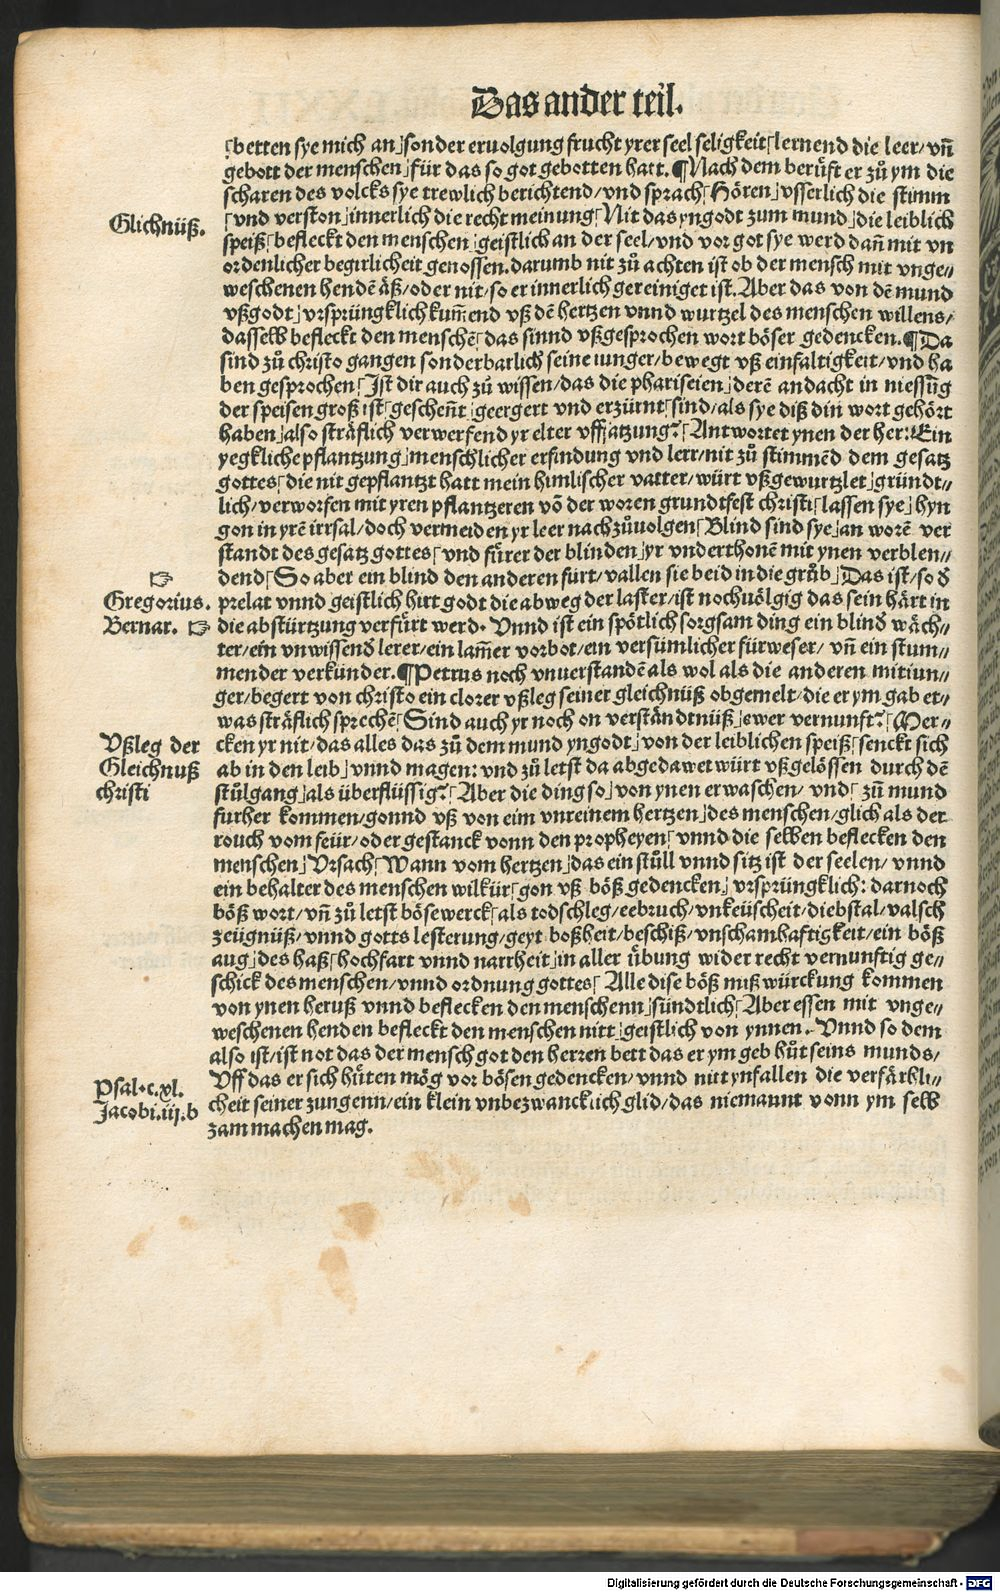 Das ander teil.
⌈betten sye mich an⌋sonder eruolgung frucht yrer seel seligkeit⌈lernend die leer/ vn̄
gebott der menschen⌋für das so got gebotten hatt. ¶Nach dem berůft er zů ym die
scharen des volcks sye trewlich berichtend/vnd sprach⌈Hören⌋vsserlich die stimm
Glichnüß.
⌈vnd verston⌋innerlich die recht meinung⌈Nit das yngodt zum mund⌋die leiblich
speiß⌈befleckt den menschen⌋geistlich an der seel/vnd vor got sye werd dañ mit vn
ordenlicher begirlicheit genossen.darumb nit zů achten ist ob der mensch mit vnge⸗
weschenen hendē äß/oder nit/so er innerlich gereiniget ist. Aber das von dē mund
vßgodt⌋vrsprüngklich kum̄end vß dē hertzen vnnd wurtzel des menschen willens/
dasselb befleckt den menschē⌈das sinnd vßgesprochen wort böser gedencken.¶Da
sind zů christo gangen sonderbarlich seine iunger/bewegt vß einfaltigkeit/vnd ha
ben gesprochen⌈Ist dir auch zů wissen/das die phariseien⌋derē andacht in niessūg
der speisen groß ist⌈gescheñt⌋geergert vnd erzürnt⌈sind/als sye diß din wort gehört
haben⌋also sträflich verwerfend yr elter vffsatzung?⌈Antwortet ynen der her:Ein
yegkliche pflantzung⌋menschlicher erfindung vnd lerr/nit zů stimmēd dem gesatz
gottes⌈die nit gepflantzt hatt mein himlischer vatter/würt vßgewurtzlet⌋gründt⸗
lich/verworfen mit yren pflantzeren vō der woren grundtfest christi⌈lassen sye⌋hyn
gon in yrē irrsal/doch vermeiden yr leer nachzůuolgen⌈Blind sind sye⌋an worē ver
standt des gesatz gottes⌈vnd fürer der blinden⌋yr vnderthonē mit ynen verblen⸗
☞
dend⌈So aber ein blind den anderen fürt/vallen sie beid in die grůb⌋Das ist/so d̄
Gregorius.
prelat vnnd geistlich hirt godt die abweg der laster/ist nochuölgig das sein härt in
Bernar. ☞
die abstürtzung verfürt werd. Vnnd ist ein spötlich sorgsam ding ein blind̄ wäch⸗
ter/ein vnwissend̄ lerer/ein lam̄er vorbot/ein versümlicher fürweser/ vn̄ ein stum⸗
mender verkünder.¶Petrus noch vnuerstandē als wol als die anderen mitiun⸗
ger/begert von christo ein clorer vßleg seiner gleichnüß obgemelt/die er ym gab et⸗
was sträflich sprechē⌈Sind auch yr noch on verständtnüß⌋ewer vernunft?⌈Mer⸗
Vßleg der
Gleichnuß
christi
cken yr nit/das alles das zů dem mund yngodt⌋von der leiblichen speiß⌈senckt sich
ab in den leib⌋vnnd magen:vnd zů letst da abgedawet würt vßgelössen durch dē
stůlgang⌋als überflüssig?⌈Aber die ding so⌋von ynen erwaschen/ vnd⌈zů mund
furher kommen/gonnd vß von eim vnreinem hertzen⌋des menschen/glich als der
rouch vom feür/oder gestanck vonn den propheyen⌈vnnd die selben beflecken den
menschen⌋Vrsach⌈Wann vom hertzen⌋das ein stůll vnnd sitz ist der seelen/ vnnd
ein behalter des menschen wilkür⌈gon vß böß gedencken⌋vrsprüngklich: darnoch
böß wort/vn̄ zů letst böse werck⌈als todschleg/eebruch/vnkeüscheit/diebstal/valsch
zeügnüß/vnnd gotts lesterung/geyt boßheit/beschiß/vnschamhaftigkeit/ein böß
aug⌋des haß⌈hochfart vnnd narrheit⌋in aller übung wider recht vernunftig ge⸗
schick des menschen/vnnd ordnung gottes⌈Alle dise böß miß würckung kommen
von ynen heruß vnnd beflecken den menschenn⌋sündtlich⌈Aber essen mit vnge⸗
weschenen henden befleckt den menschen nitt⌋geistlich von ynnen. Vnnd so dem
also ist/ist not das der mensch got den herren bett das er ym geb hůt seins munds/
Psal.c.xl.
Jacobi.iij.b
Vff das er sich hüten mög vor bösen gedencken/vnnd nitt ynfallen die verfärbli⸗
cheit seiner zungenn/ein klein vnbezwancklich glid/das niemannt vonn ym selb
zam machen mag.
Digitalisierung gefördert durch die Deutsche Forschungsgemeinschaft - DFG